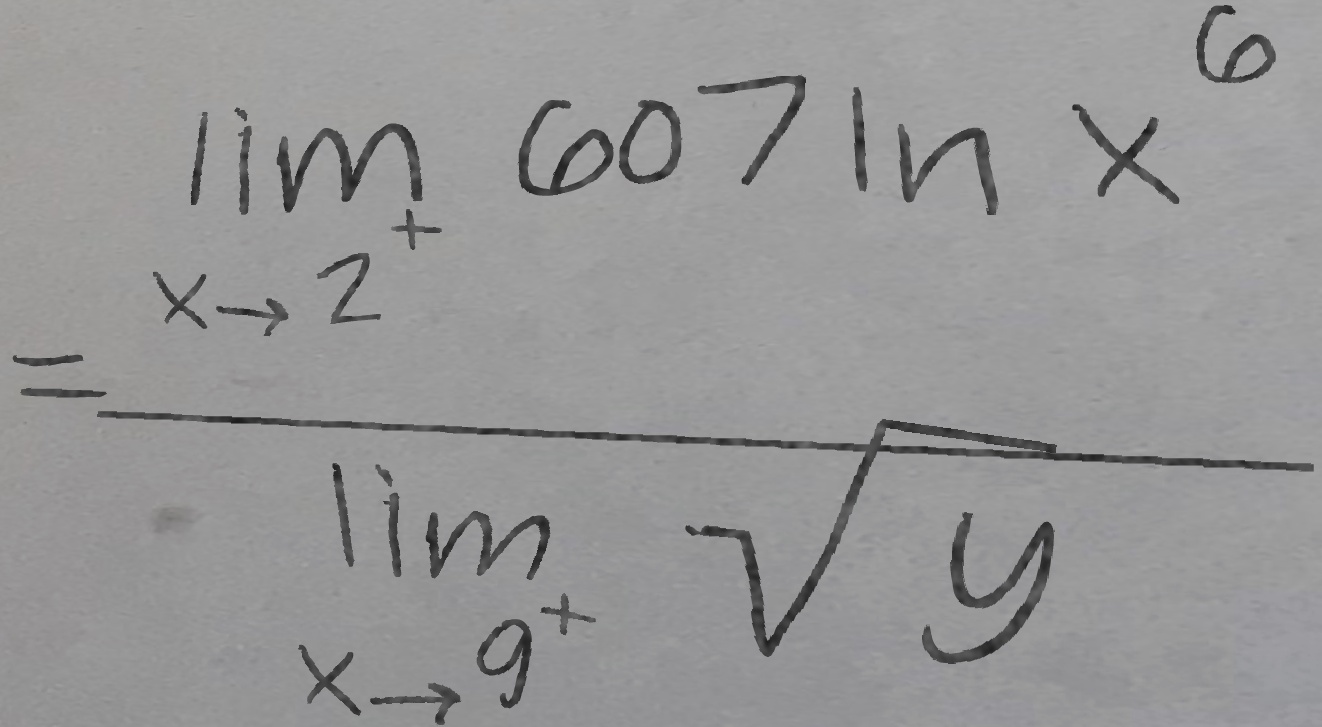 = \frac{\lim_{x \to 2^+} 607 \ln x^6}{\lim_{x \to 9^+} \sqrt{y}}